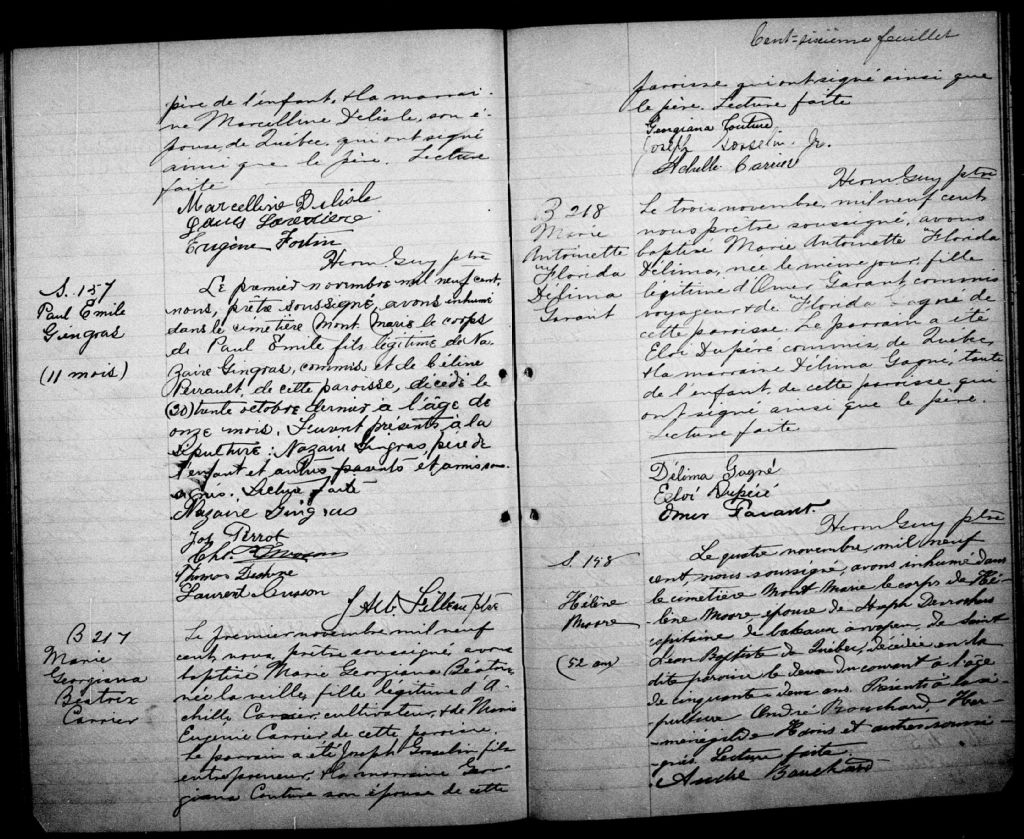 père de l'enfant, & la marrai-
ne Marcelline Delisle, son é-
pouse, de Québec, qui ont signé
ainsi que le père. Lecture
faite
Marcelline Delisle
Eugène Fortin
Herm. Guy ptre
S. 157
Paul Emile
Gingras
(11 mois)
Le premier novembre mil neuf cent,
nous, prêtre soussigné, avons inhumé
dans le cimetière Mont Marie le corps
de Paul Emile fils légitime de Na-
zaire Gingras, commis et de Céline
Perrault, de cette paroisse, décédé le
(30) trente octobre dernier à l'âge de
onze mois. Furent présents à la
sépulture: Nazaire Gingras, père de
l'enfant et autres parents et amis sous-
signés. Lecture faite
Nazaire Gingras
Jos Perrot
Chs.
Thomas
Laurent Cusson
ptre
B 217
Marie
Georgiana
Béatrix
Carrier
Le premier novembre mil neuf
cent nous, prêtre soussigné avons
baptisé Marie Georgiana Béatrix,
née la veille, fille légitime d'A-
chille Carrier, cultivateur, & de Marie
Eugénie Carrier de cette paroisse.
Le parrain a été Joseph Gosselin fils
entrepreneur, & la marraine Geor-
giana Couture son épouse de cette
Cent-sixième feuillet
paroisse qui ont signé ainsi que
le père. Lecture faite
Georgiana Couture
Joseph Gosselin Jr.
Achille Carrier
Herm. Guy ptre
B 218
Marie
Antoinette
Florida
Délima
Garant
Le trois novembre, mil neuf cent
nous prêtre soussigné, avons
baptisé Marie Antoinette Florida
Délima, née le même jour, fille
légitime d'Omer Garant, commis
voyageur & de Florida Gagné de
cette paroisse. Le parrain a été
Eloi Dupéré commis, de Québec,
& la marraine Délima Gagné, tante
de l'enfant, de cette paroisse qui
ont signé ainsi que le père.
Lecture faite
Délima Gagné
Eloi Dupéré
Omer Garant
Herm. Guy ptre
S. 158
Hélène
Moore
(52 ans)
Le quatre novembre, mil neuf
cent, nous soussigné, avons inhumé dans
le cimetière Mont Marie le corps de Hé-
lène Moore, épouse de Joseph Desrochers
capitaine de bateaux à vapeur, de Saint
Jean Baptiste de Québec, décédée en la
dite paroisse le deux du courant à l'âge
de cinquante-deux ans. Présents à la sé-
pulture André Bouchard, Her-
ménégilde et autres soussi-
gnés. Lecture faite.
André Bouchard